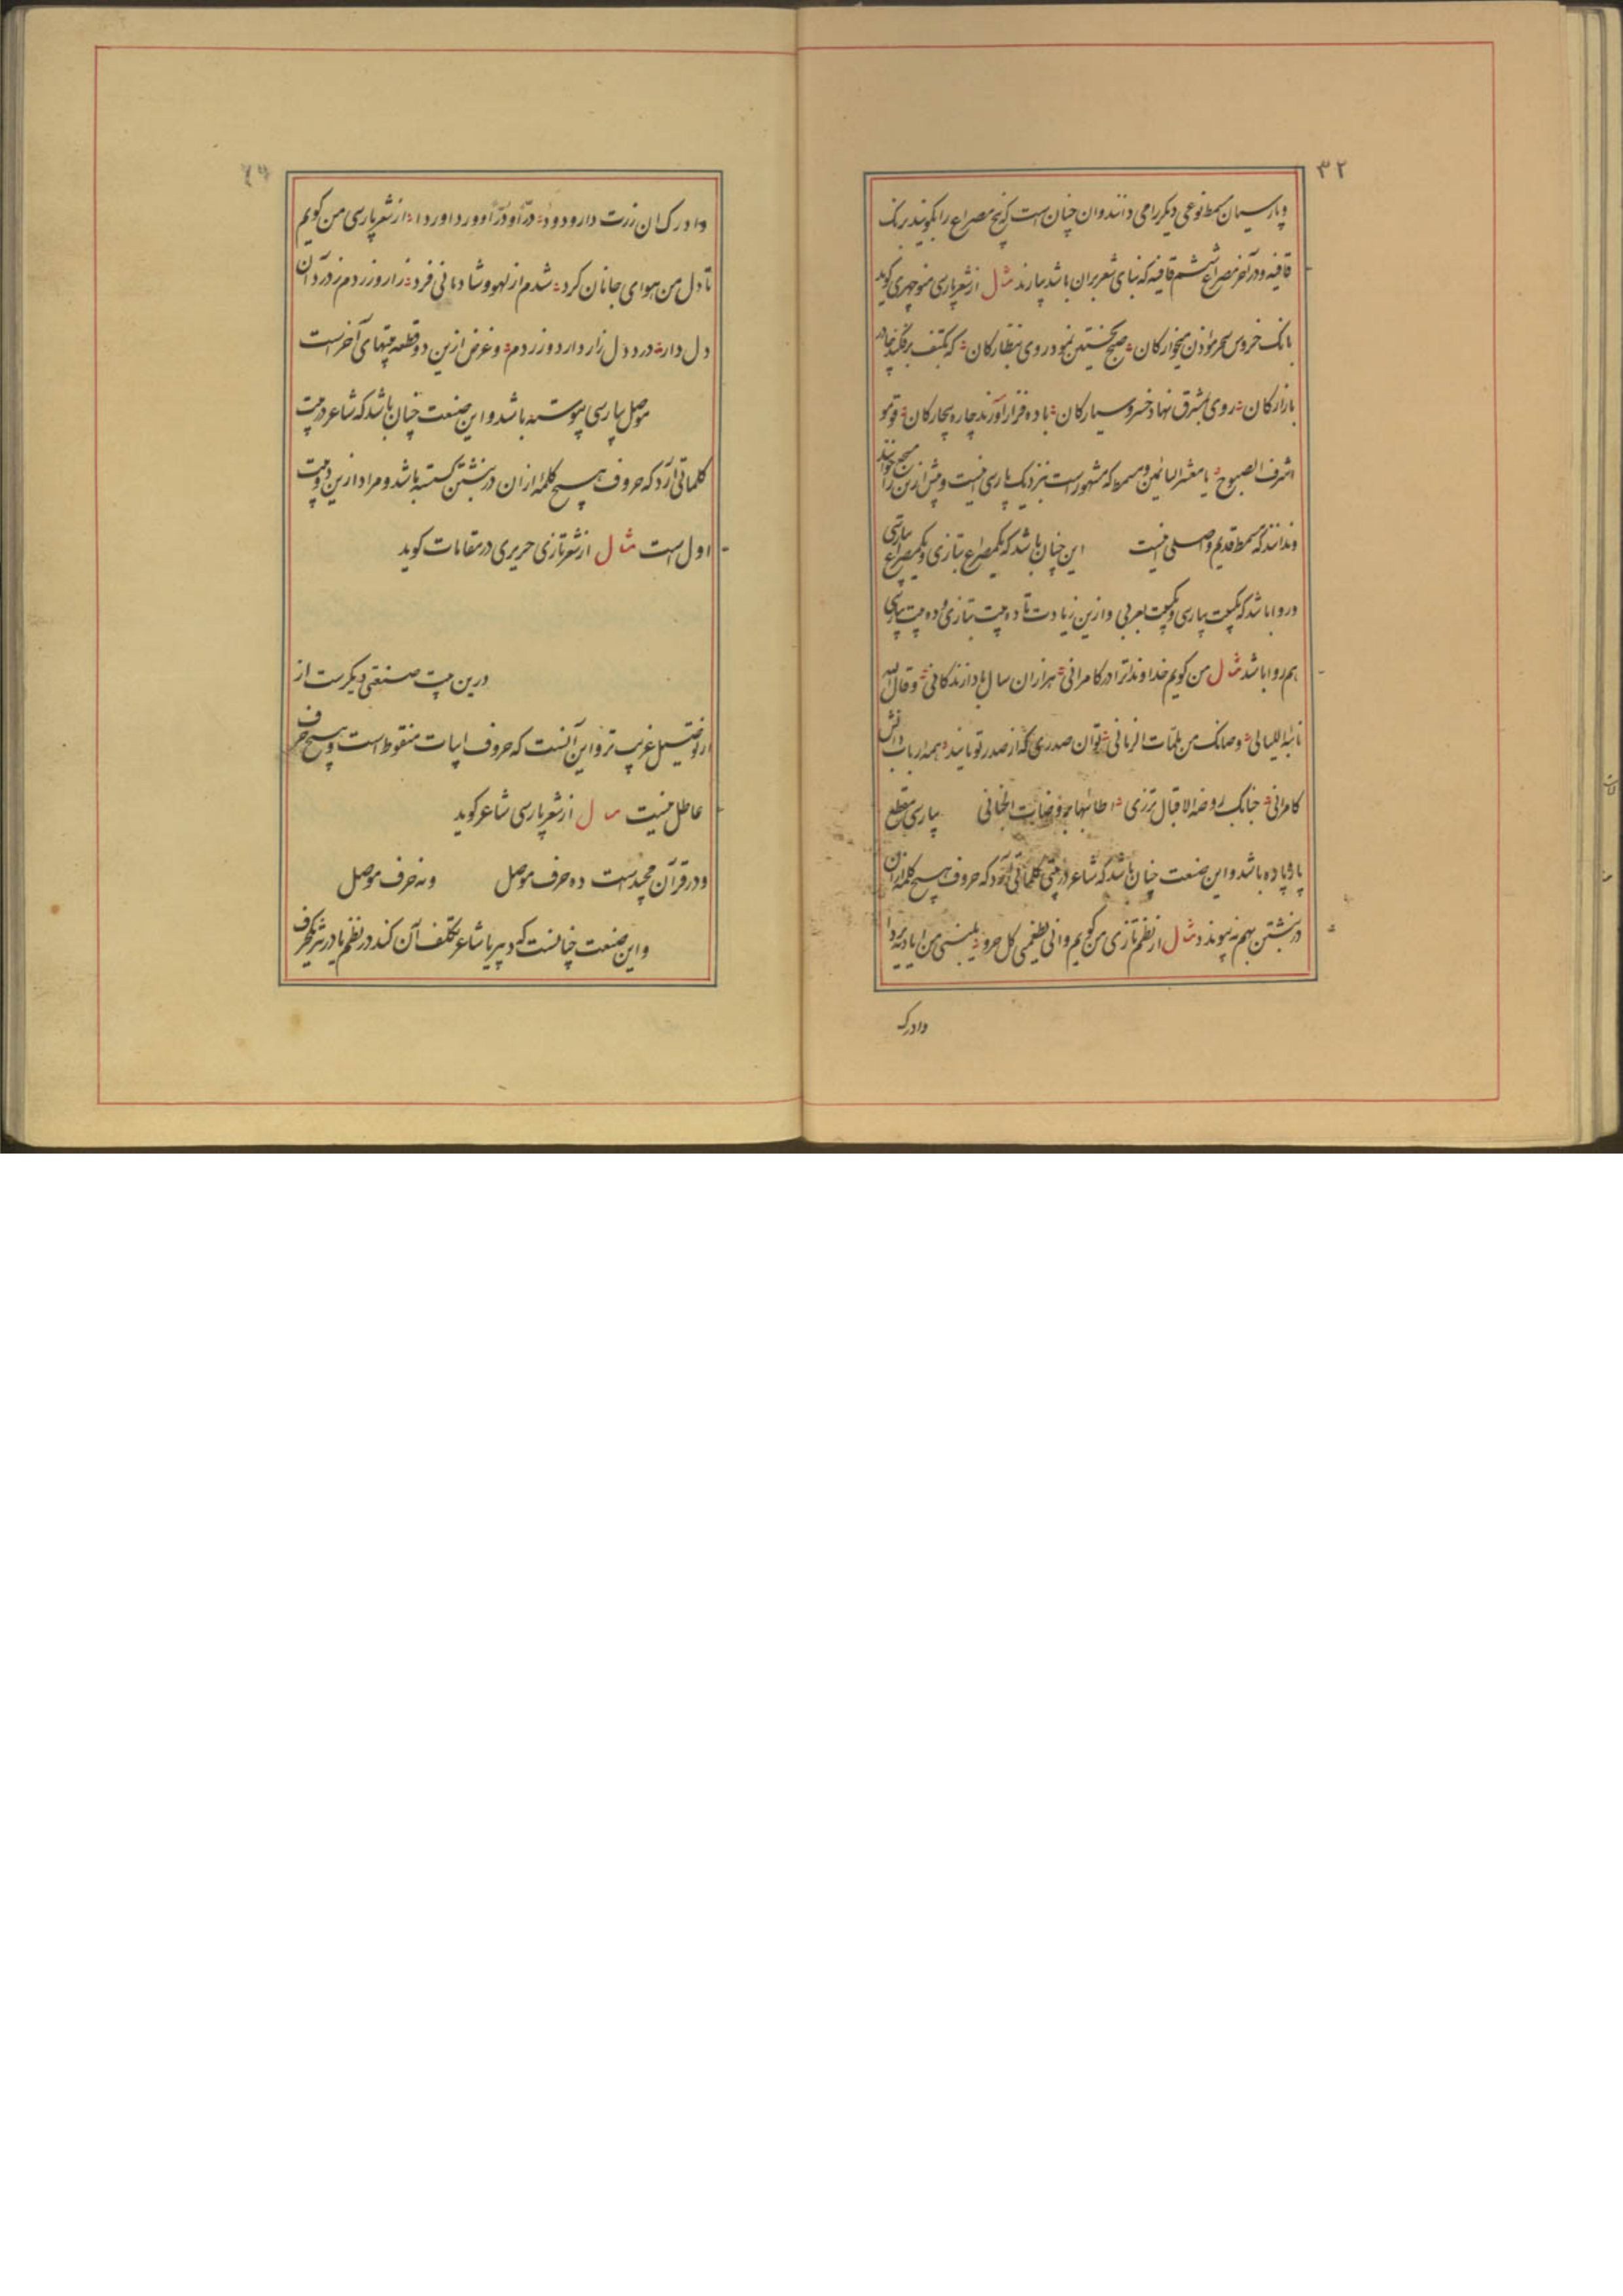 ۳۲
وپارسیان مسمط نوعی دیکر را می دانند وان چنان است که پنج مصراع را بکویند بر یک
قافیه ودر آخر مصراع ششم قافیه که بنای شعر بران باشد بیارند مثال از شعر پارسی منوچهری کوید
بانک خروس سحر مؤذن میخوارکان صبح نخستین نمود روی بنظارکان که بکتف برفکند چادر
بازارکان روی بمشرق نهاد خسرو سیارکان باده فراز آورید چاره بیچارکان قوموا
اشرف الصبوح یا معشر النائمین ومسمط که مشهورست نزدیک پارسی اینست وپیش ازین را مسجع خوانند
وندانند که مسمط قدیم واصلی اینست این چنان باشد که یکمصراع بتازی ویکمصراع بپارسی
وروا باشد که یکبیت پارسی ویکبیت بعربی وازین زیادت تا ده بیت بتازی وده بیت پارسی
هم روا باشد مثال من کویم خداوندا ترا در کامرانی هزاران سال بادا زندکانی وقاک الله
نائبة اللیالی وصانک من ملمات الزمانی توان صدری که از صدر تو مانند همه ارباب دانش
کامرانی جنابک روضة الاقبال تزری اطائبها بروضات الجنانی پارسی مقطع
پاره پاره باشد واین صنعت چنان باشد که شاعر در بیتی کلماتی آرد که حروف هیچ کلمه ازان
در نبشتن بهم نه پیوندد مثال از نظم تازی من کویم وانی لطفی کل حرو
وادرک
وادرک ان زرت دار ودود در او ودر او وورد اوردا از شعر پارسی من کویم
تا دل من هوای جانان کرد شدم از لهو وشادمانی فرد زار وزردم ز درد آن
دل دار درد دل زار دارد وزردم وغرض ازین دو قطعه بیتهای آخرست
موصل بپارسی پیوسته باشد واین صنعت چنان باشد که شاعر در بیت
کلماتی آرد که حروف هیچ کلمه ازان در نبشتن کسسته باشد ومراد ازین دو بیت
اول است مثال از شعر تازی حریری در مقامات کوید
درین بیت صنعتی دیکرست از
از توصیل غریب تر واین آنست که حروف ابیات منقوط است وهیچ حرف
عاطل نیست مثال از شعر پارسی شاعر کوید
ودر قرآن مجیدست ده حرف موصل ونه حرف موصل
واین صنعت چنانست که دبیر یا شاعر تکلف آن کند در نظم یا در نثر یکحرف